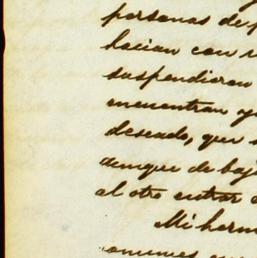 personas de
hacian con
suspendieron
encuentran
deseado, que
aunque de baj
al otro entrar
Mi herm